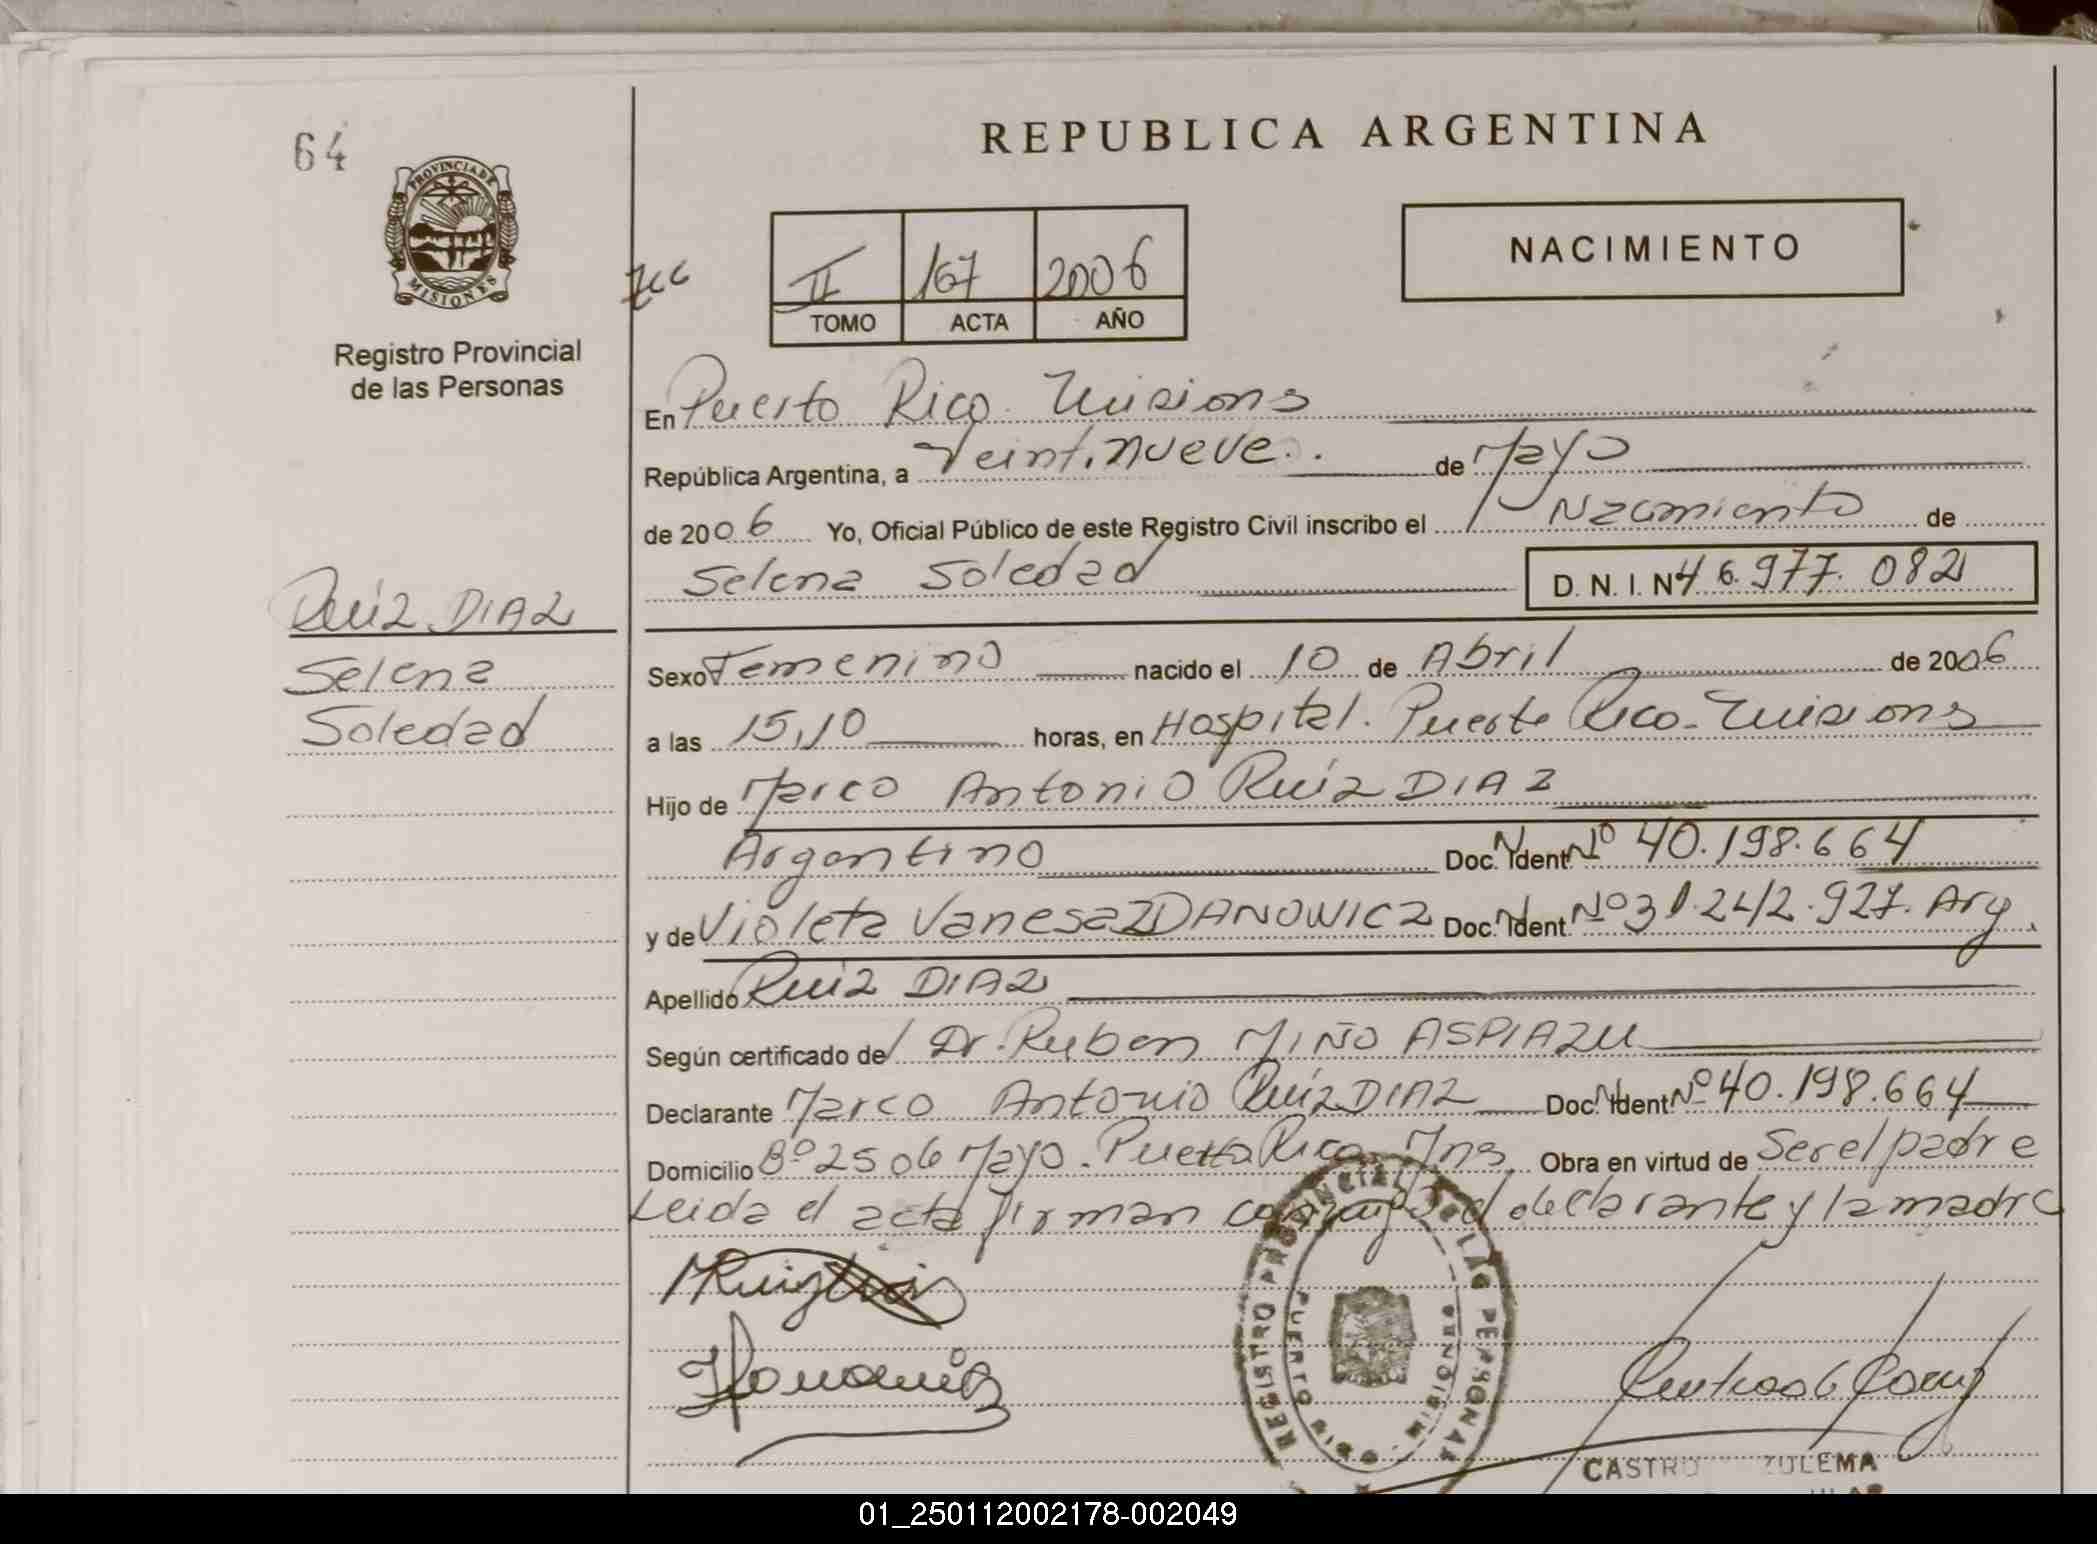 64
REPUBLICA ARGENTINA
PROVINCIA DE
MISIONES
Registro Provincial
de las Personas
II 167 2006
TOMO ACTA AÑO
NACIMIENTO
En Puerto Rico. Misiones
República Argentina, a Veintinueve. de Mayo
de 2006 Yo, Oficial Público de este Registro Civil inscribo el Nacimiento de
Selena Soledad D. N. I. Nº 46.977.082
Ruíz DIAZ
Selena
Soledad
Sexo Femenino nacido el 10 de Abril de 2006
a las 15,10 horas, en Hospital. Puerto Rico-Misiones
Hijo de Marco Antonio Ruíz DIAZ
Argentino Doc. Ident. Nº 40.198.664
y de Violeta Vanesa ZDANOWICZ Doc. Ident. Nº 31.242.927. Arg.
Apellido Ruíz DIAZ
Según certificado de Dr. Ruben MIÑO ASPIAZU
Declarante Marco Antonio Ruíz DIAZ Doc. Ident. Nº 40.198.664
Domicilio Bº 25 de Mayo. Puerto Rico, Mns. Obra en virtud de Ser el padre
Leida el acta firman conmigo el declarante y la madre
REGISTRO PROVINCIAL DE LAS PERSONAS
PUERTO RICO MISIONES
CASTRO ZULEMA
01_250112002178-002049